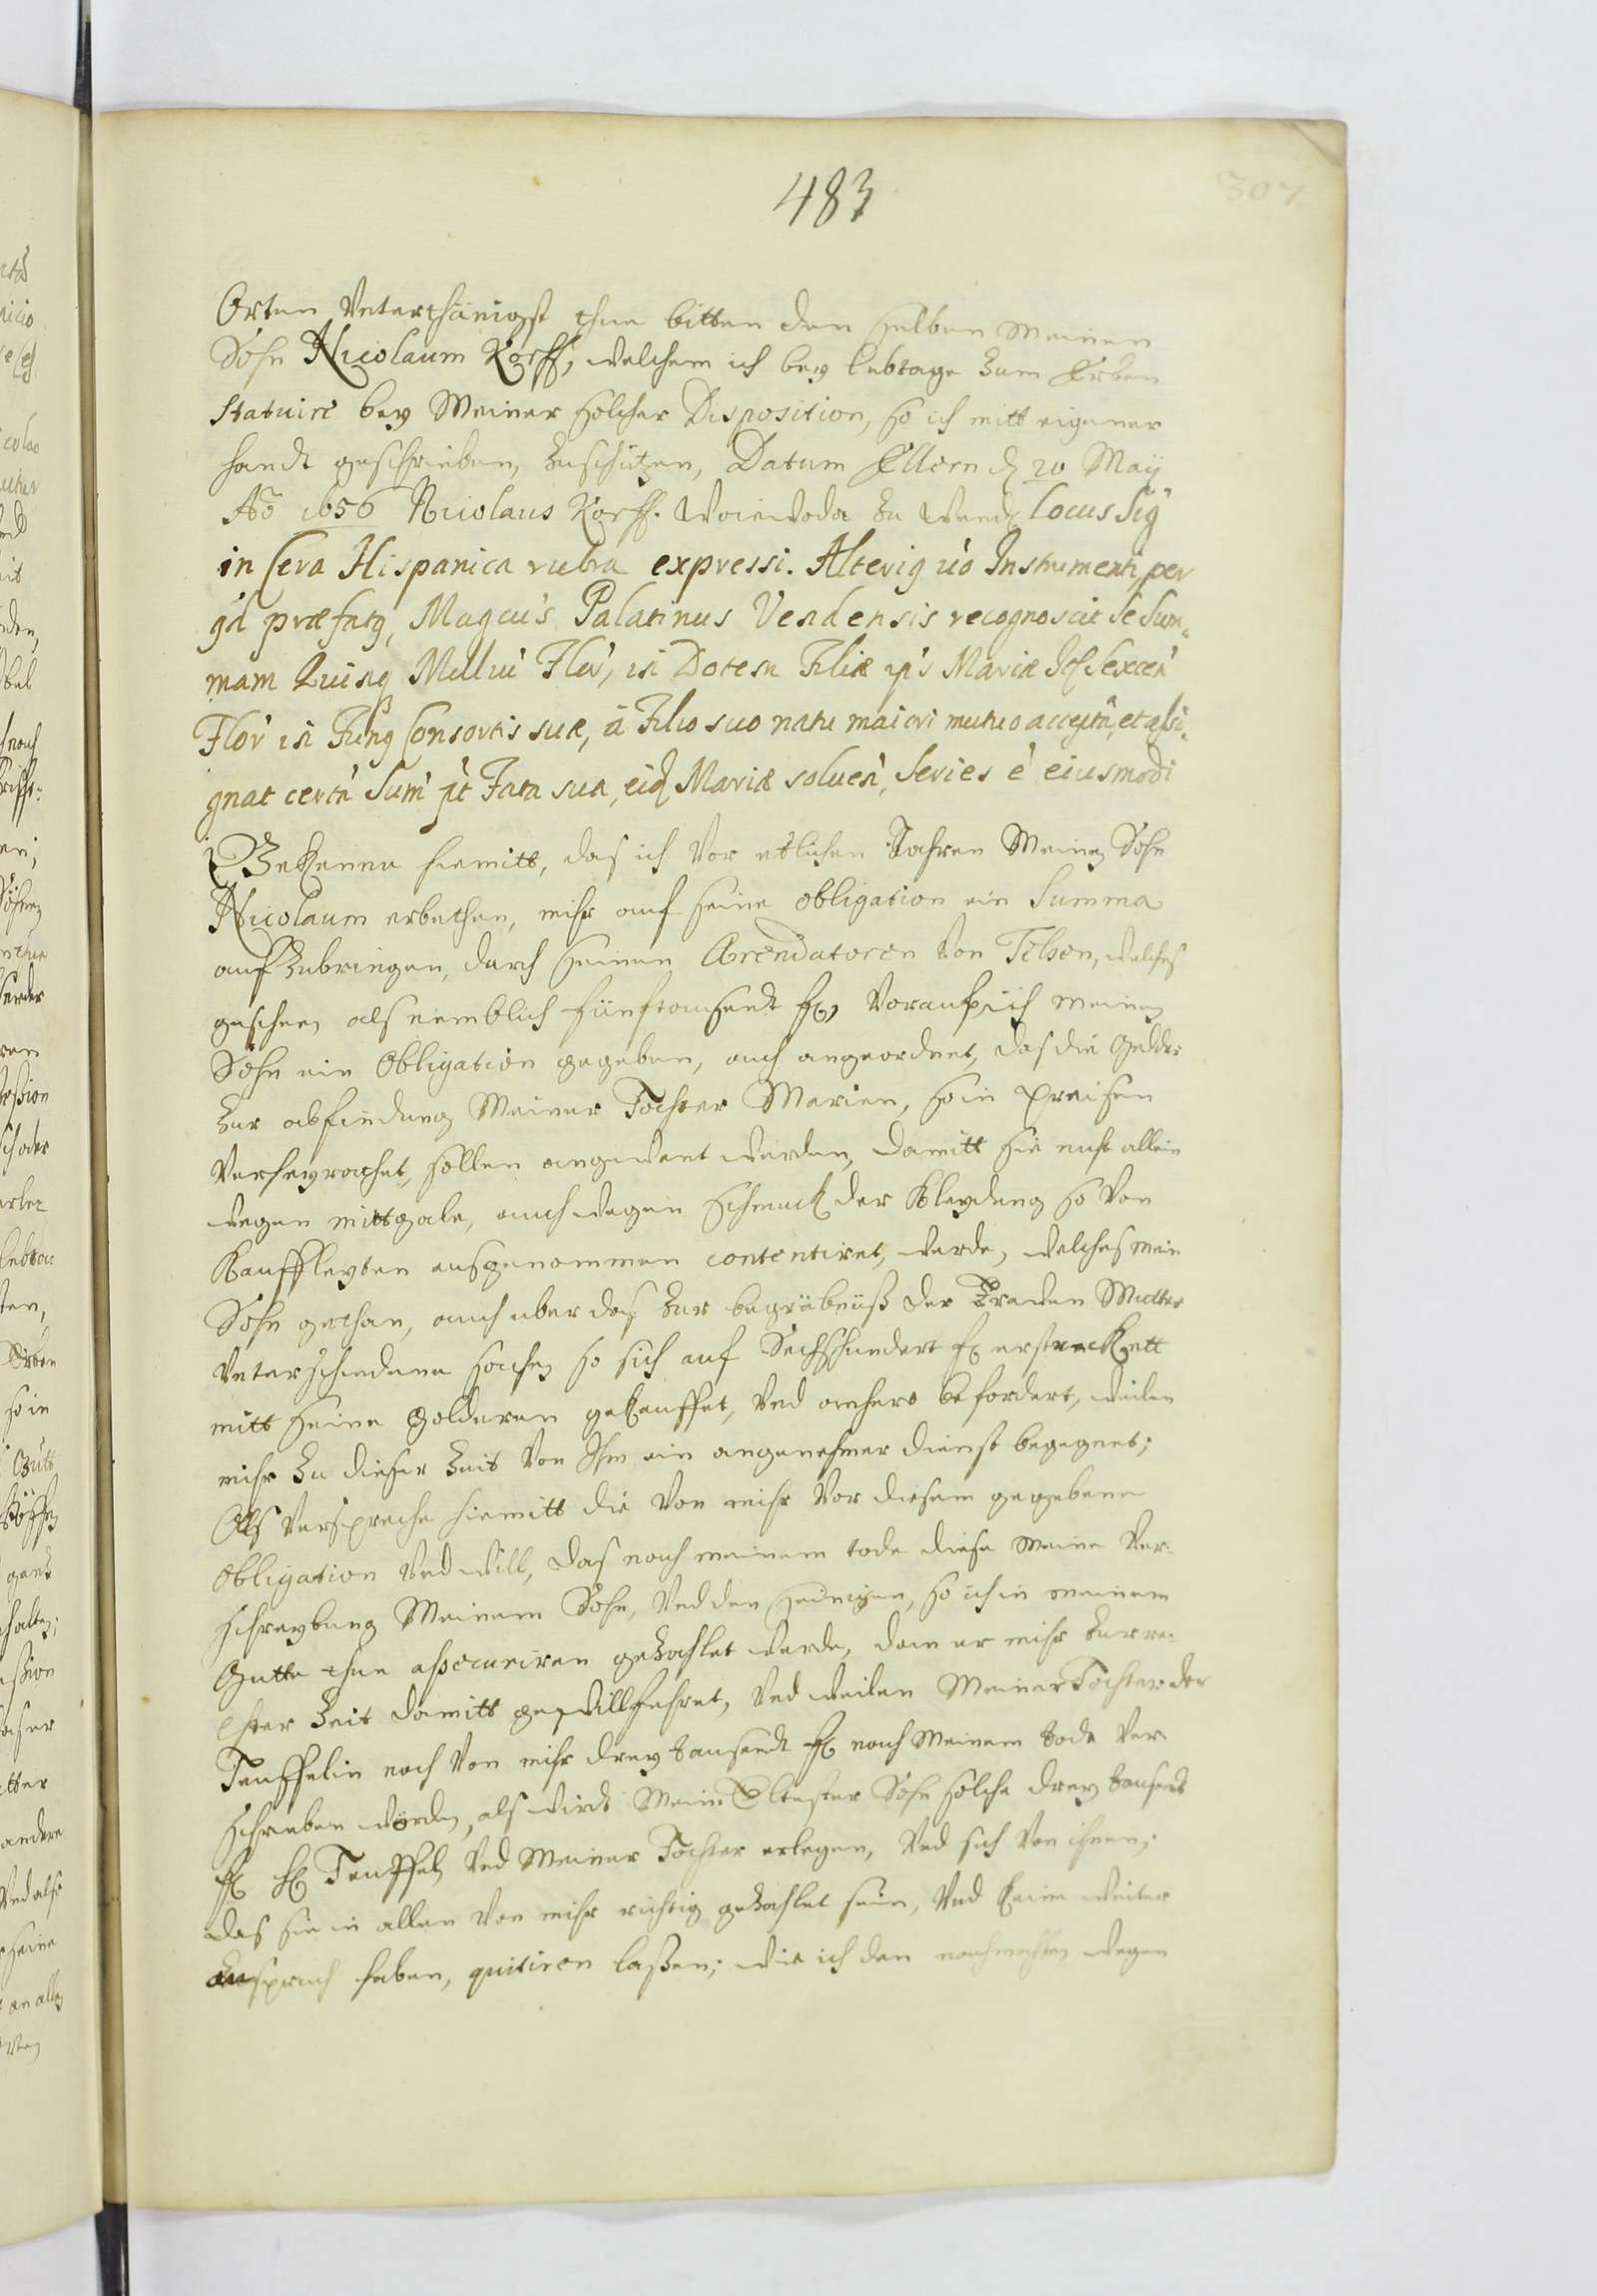 483
307
Orten Vnterthänigst thue bitten den selben meinen
Sohn Nicolaum Korff, welchem ich bey lebtage zum Erben
statuire bey Meiner solcher Disposition, so ich mitt eigener
handt geschrieben, zuschützen, Datum Ellern d 20 Maÿ
Aõ 1656 Nicolaus Korff. Woiewoda zu Wend Locus Sig
in Cera Hispanica rubra expressi. Alterig vo Instrumenti per
qd præfatq, Magcus Palatinus Vendensis recognoscit Se Sum„
mam Quinq Milliu Flor, in Dotem Filiæ ips Mariæ Sexcen
Flor in Fung Consortis suæ, a Filio suo natu maiori mutuo accepta, et assi„
gnat certa Sum pt Fata sua, eid Mariæ soluen, Series e eiusmodi
Bekenne hiemitt, das ich Vor etlichen Jahren Meinen Sohn
Nicolaum erbethen, mihr auf seine obligation ein Summa
aufzubringen, durch seinen Arendatoren Von Telsen, welches
geschen als nemblich fünftausendt fl, Vorauf ich meinen
Sohn ein Obligation gegeben, auch angeordnet, das die Gelder
zur abfindung Meiner Tochter Marien, so in Preüsen
Verheyrathet, sollen angewent werden, damitt sie nicht allein
wegen mittgabe, auch wegen schmuck der Kleydung so Von
Kauffleyten ausgenommen contentiret, werde, welches mein
Sohn gethan, auch uber das zur begräbnüß der Frauen Mutter
Vnterschiedene sachen so sich auf Sechshundert fl erstreckett
mitt seine gelderen gekauffet, Vnd anhero befordert, weilen
mihr zu dieser zeit Von Ihm ein angenehmer dienst begegnet;
Als Verspreche hiemitt die Von mihr Vor diesem gegebene
Obligation Vnd will, das nach meinem tode diese Meine Ver-
schreybung Meinem Sohn, Vnd den seinigen, so ich in meinem
Gutte thue assecuriren gezahlet werde, dan er mihr zur re-
chter zeit damitt gewillfehret, Vnd weilen Meiner Tochter der
Teuffelin noch Von mihr drey tausendt fl nach Meinem tode Ver-
schrieben worden, als wirdt Mein Eltester Sohn solche drey tausendt
fl H Teuffel Vnd Meiner Tochter erlegen, Vnd sich Von ihnen,
das sie in allen Von mihr richtig gezahlet sein, Vnd keine weiter
anspruch haben, quitiren laßen; wie ich den nachmahlen wegen